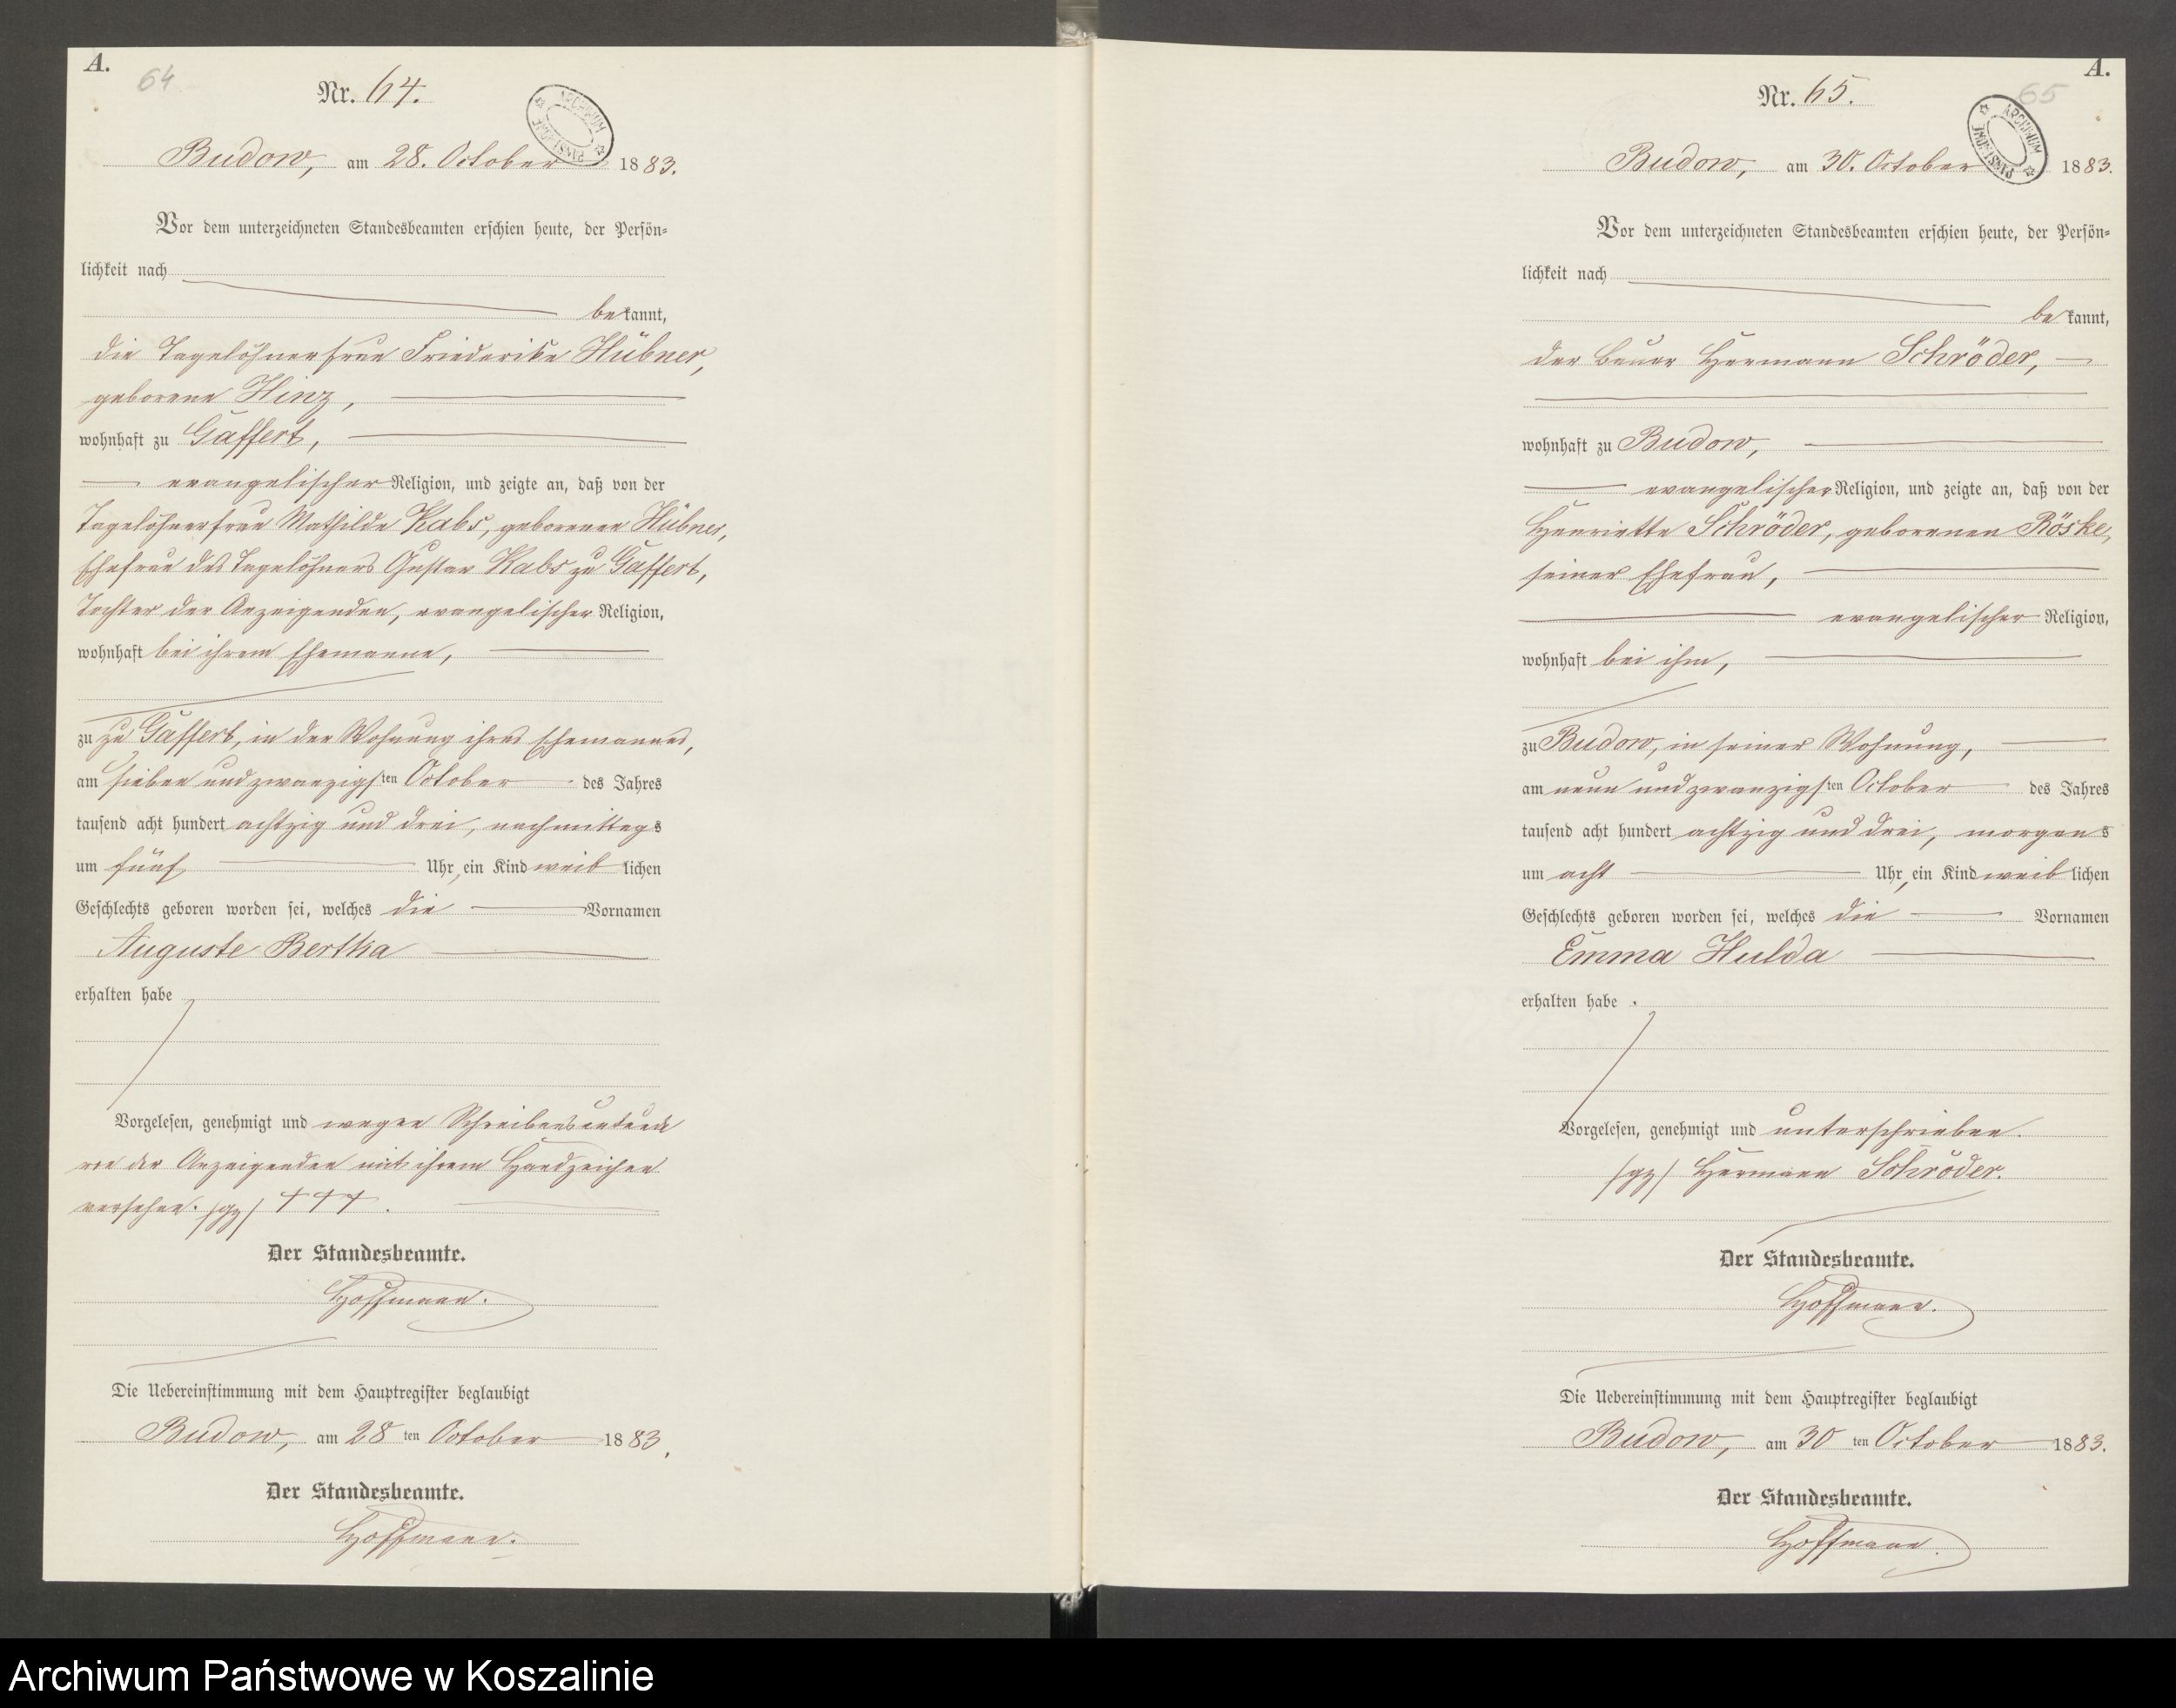 A.
64
Nr. 64.
ARCHIWUM PAŃSTWOWE
Budow, am 28. October 1883.
Vor dem unterzeichneten Standesbeamten erschien heute, der Persön-
lichkeit nach
bekannt,
die Tagelöhnerfrau Friederike Hübner,
geborene Hinz,
wohnhaft zu Gaffert,
evangelischer Religion, und zeigte an, daß von der
Tagelöhnerfrau Mathilde Kabs, geborenen Hübner,
Ehefrau des Tagelöhners Gustav Kabs zu Gaffert,
Tochter der Anzeigenden, evangelischer Religion,
wohnhaft bei ihrem Ehemanne,
zu zu Gaffert, in der Wohnung ihres Ehemannes,
am sieben und zwanzigsten October des Jahres
tausend acht hundert achtzig und drei, nachmittags
um fünf Uhr, ein Kind weiblichen
Geschlechts geboren worden sei, welches die Vornamen
Auguste Bertha
erhalten habe
Vorgelesen, genehmigt und wegen Schreibensunkunde
von der Anzeigenden mit ihrem Handzeichen
versehen. /gz/ +++.
Der Standesbeamte.
Hoffmann.
Die Uebereinstimmung mit dem Hauptregister beglaubigt
Budow, am 28 ten October 1883.
Der Standesbeamte.
Hoffmann.
A.
65
Nr. 65.
ARCHIWUM PAŃSTWOWE
Budow, am 30. October 1883.
Vor dem unterzeichneten Standesbeamten erschien heute, der Persön-
lichkeit nach
bekannt,
der Bauer Hermann Schröder,
wohnhaft zu Budow,
evangelischer Religion, und zeigte an, daß von der
Henriette Schröder, geborenen Röske,
seiner Ehefrau,
evangelischer Religion,
wohnhaft bei ihm,
zu Budow, in seiner Wohnung,
am neun und zwanzigsten October des Jahres
tausend acht hundert achtzig und drei, morgens
um acht Uhr, ein Kind weiblichen
Geschlechts geboren worden sei, welches die Vornamen
Emma Hulda
erhalten habe.
Vorgelesen, genehmigt und unterschrieben.
/gz/ Hermann Schröder.
Der Standesbeamte.
Hoffmann.
Die Uebereinstimmung mit dem Hauptregister beglaubigt
Budow, am 30 ten October 1883.
Der Standesbeamte.
Hoffmann.
Archiwum Państwowe w Koszalinie